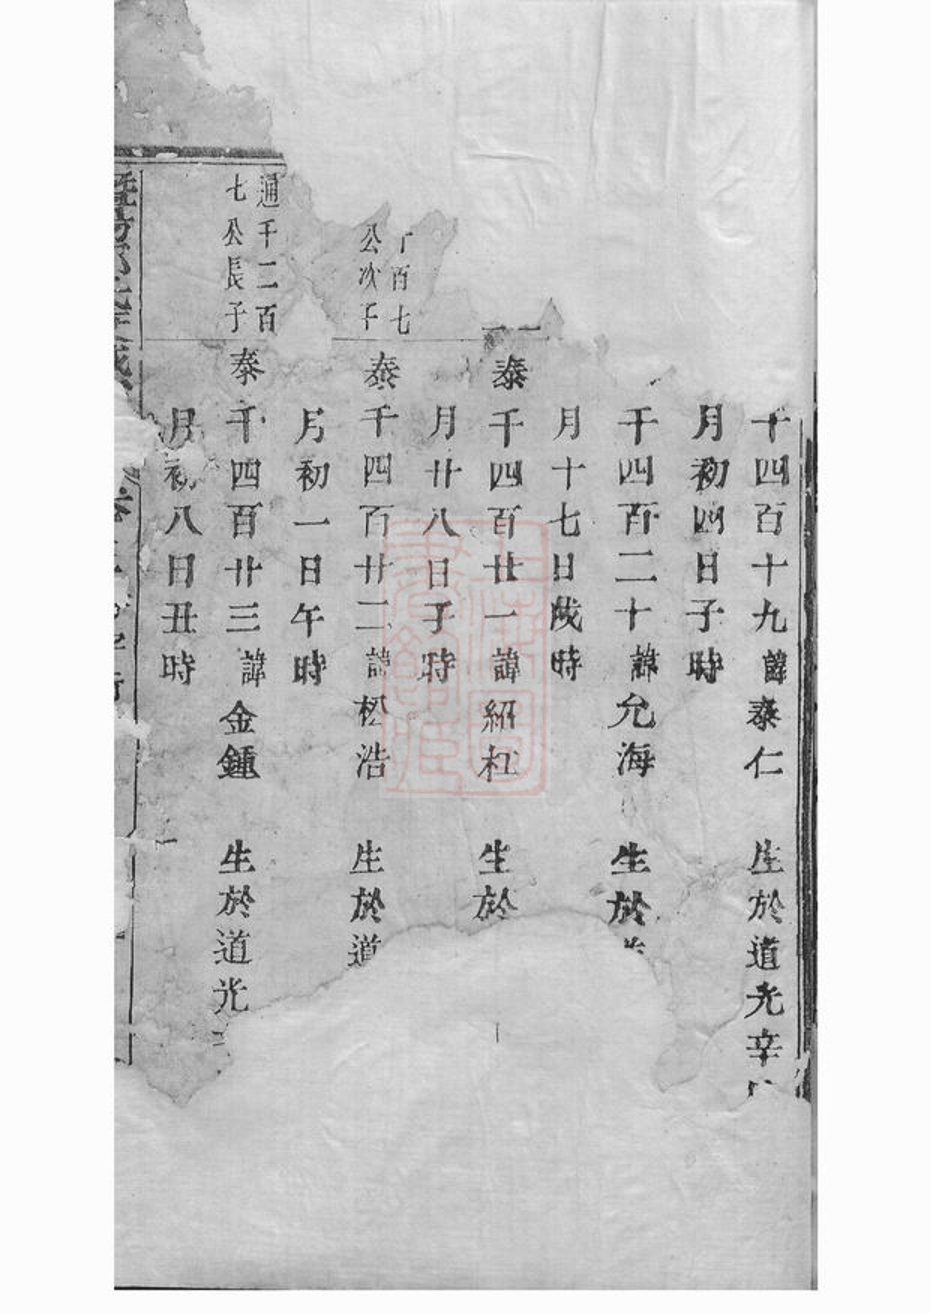 千四百十九諱泰仁 生於道光辛
月初四日子時
千四百二十諱允海 生於
月十七日戌時
泰千四百廿一諱紹松 生於
月廿八日子時
百七
公次子
泰千四百廿二諱松浩 生於道
月初一日午時
通千二百
七公長子
泰千四百廿三諱金鍾 生於道光
月初八日丑時
上海圖
書館藏